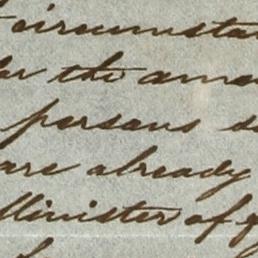 circumsta
for the ame
persons s
are already
Minister of